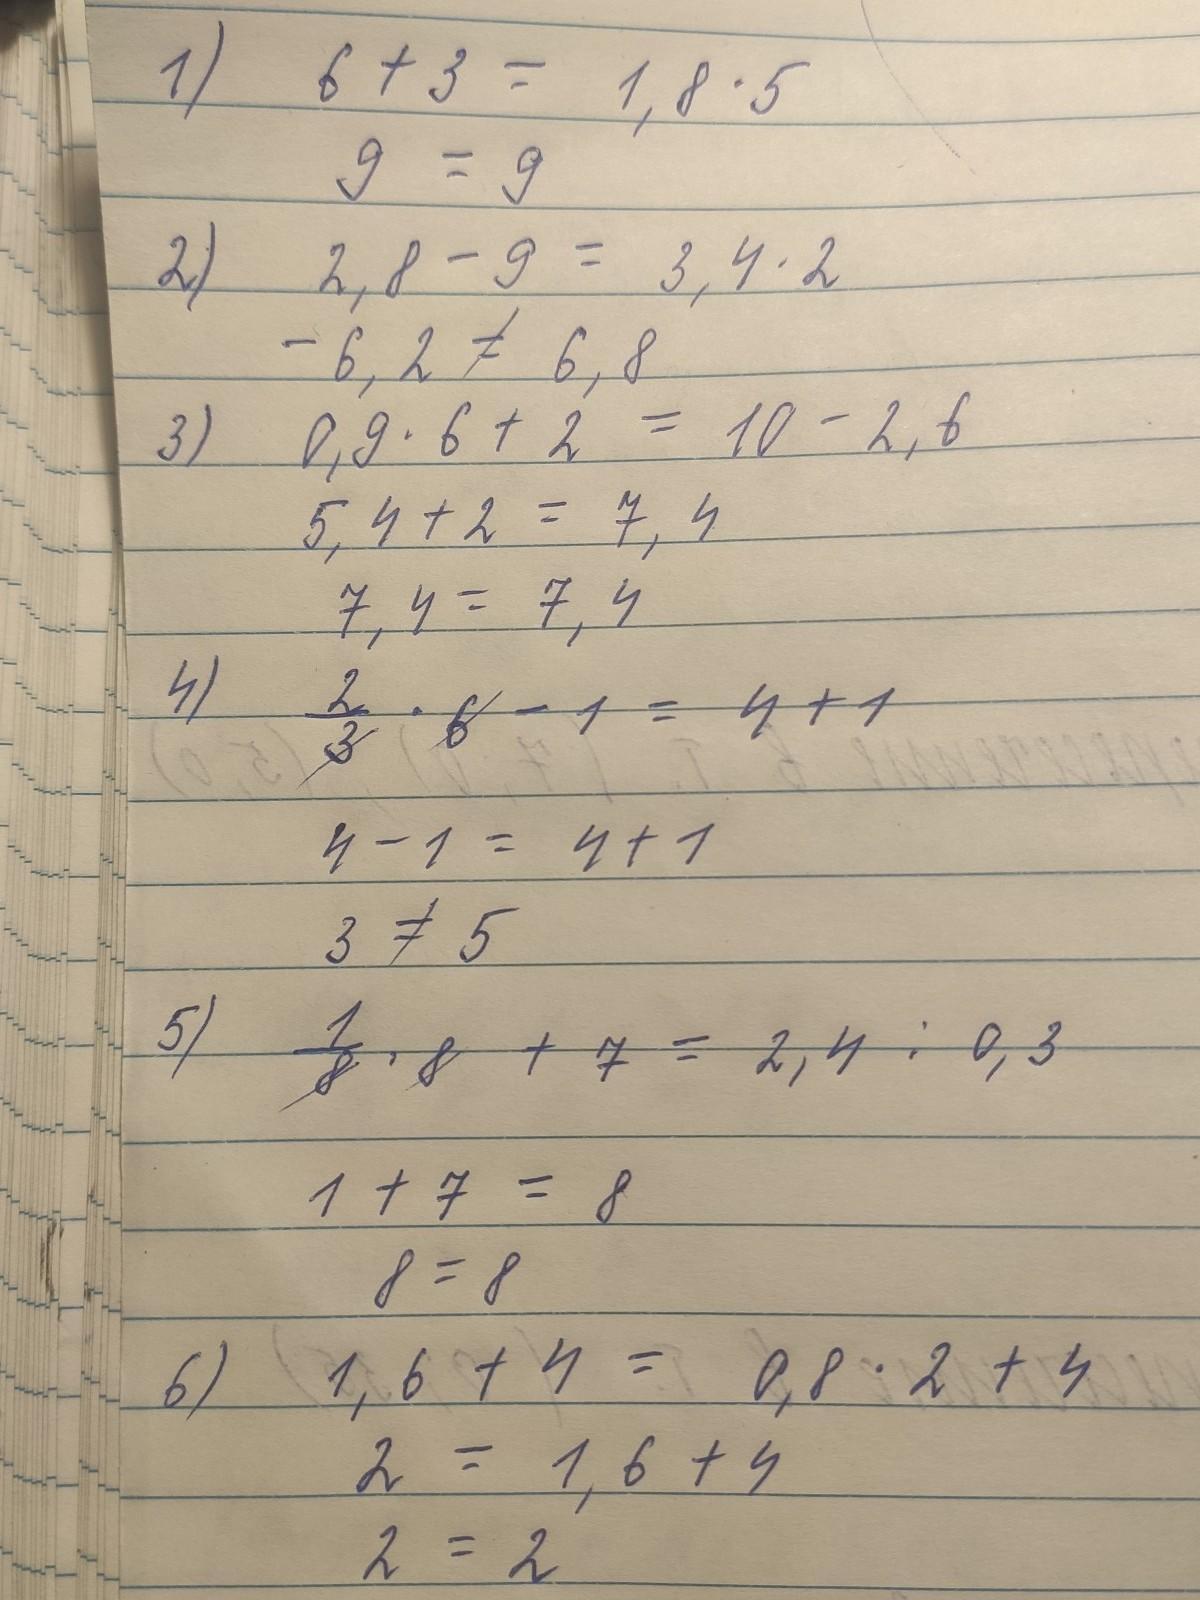 1) 6 + 3 = 1,8 · 5
9 = 9
2) 2,8 - 9 = 3,4 · 2
-6,2 ≠ 6,8
3) 0,9 · 6 + 2 = 10 - 2,6
5,4 + 2 = 7,4
7,4 = 7,4
4) 2/3 · 6 - 1 = 4 + 1
4 - 1 = 4 + 1
3 ≠ 5
5) 1/8 · 8 + 7 = 2,4 : 0,3
1 + 7 = 8
8 = 8
6) 1,6 + 4 = 0,8 · 2 + 4
2 = 1,6 + 4
2 = 2